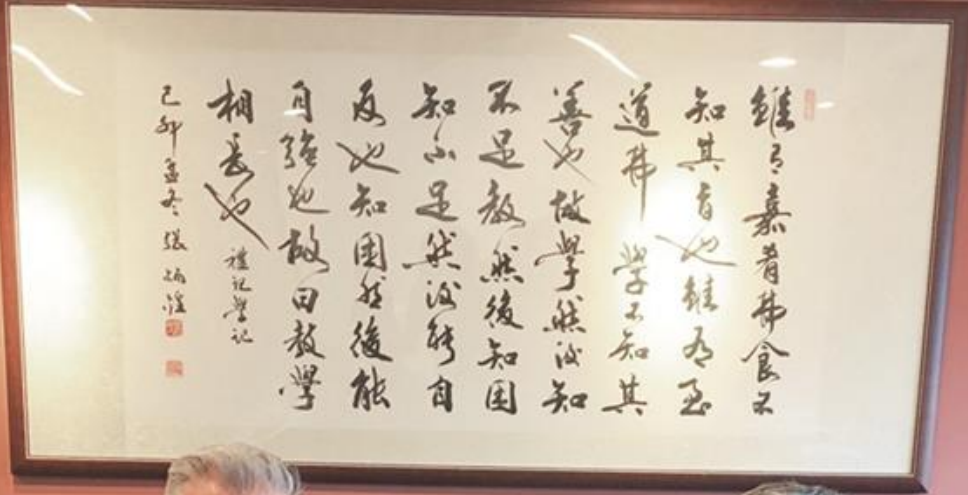 雖有嘉肴弗食不
知其旨也雖有至
道弗學不知其
善也故學然後知
不足教然後知困
知不足然後能自
反也知困然後能
自強也故曰教學
相長也 禮記學記
己卯孟冬張炳煌